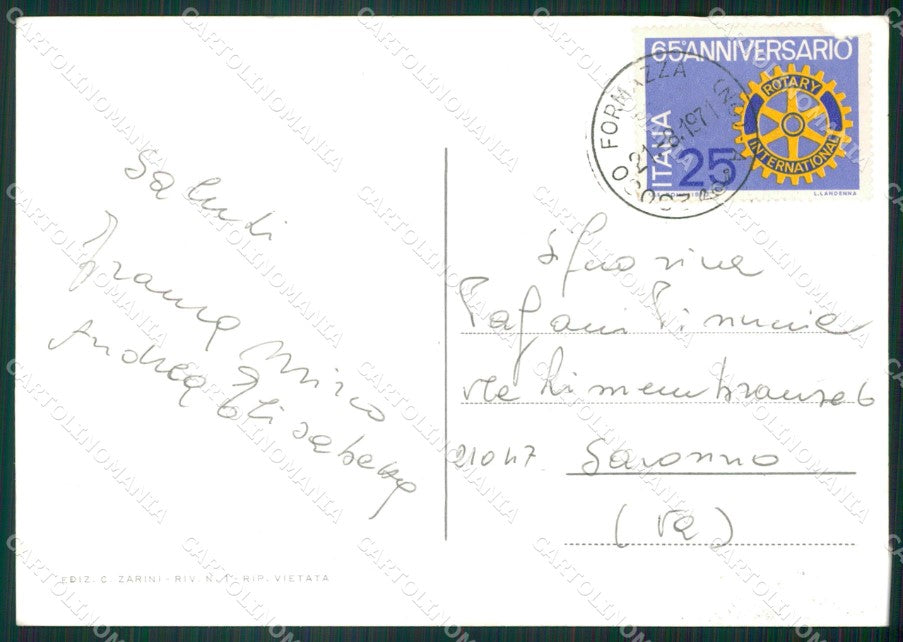 Saluti
Franca Mirco
Andrea Elisabetta
EDIZ. C. ZARINI - RIV. N. 1 - RIP. VIETATA
65° ANNIVERSARIO
ROTARY
INTERNATIONAL
ITALIA
25
L. LANDENNA
FORMAZZA
21.8.1971
Signorina
Pagani
via Rimembranze 6
21047 Saronno
(Va)
CARTOLINOMANIA